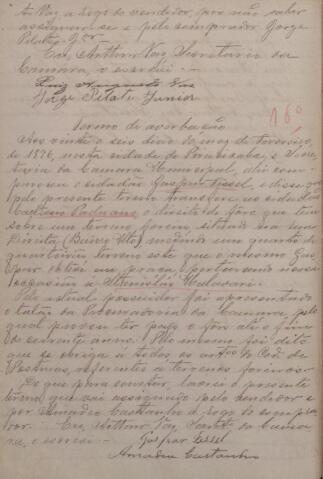 A. Vaz, a rogo do vendedor, por não saber
assignar se e pelo comprador Jorge
Pilate Jor.
Eu, Arthur Vaz, Secretario da
Camara, o escrevi.
Luiz Augusto Vaz
Jorge Pilate Junior
16º
Termo de averbação
Aos vinte e seis dias do mez de Fevereiro,
de 1896, nesta cidade de Piracicaba, e Secre-
taria da Camara Municipal, ahi com-
pareceu o cidadão Gaspar Lessel, e disse que
pelo presente termo transfere ao cidadão
Caetano o direito de fôro que tem
sobre um terreno foreiro, situado na rua
Direita (Bairro Alto) medindo um quarto de
quarteirão, terreno esse que o mesmo Gas-
par obteve em praça, pertencendo nessa
occasião a Stanislau
O actual possuidor foi apresentando
o talão da Procuradoria da Camara, pelo
qual provou ter pago o fôro até o fim
do corrente anno. Pelo mesmo foi dito
que se obriga a todos os artºs do Cod. de
Posturas, referentes a terrenos foreiros.
Do que para constar, lavrei o presente
termo que vai assignado pelo vendedor e
por Amadeu Castanho a rogo do compra-
dor. Eu, Arthur Vaz, Sectº da Cama-
ra, o escrevi.
Gaspar Lessel
Amadeu Castanho